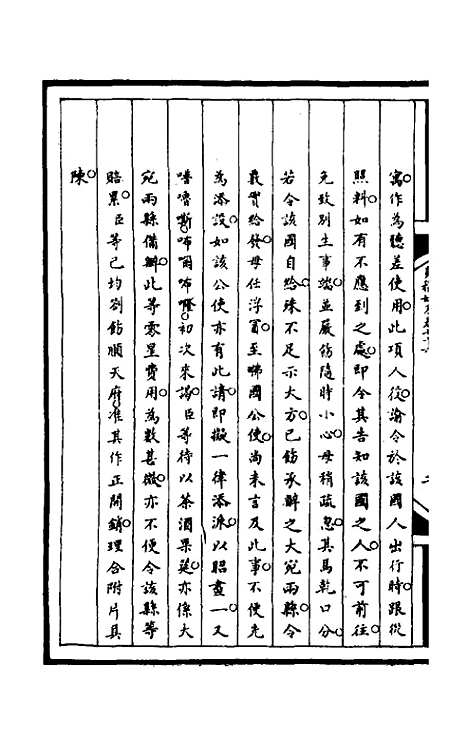 寓作為聽差使用此項人役諭令於該國人出行時跟從
照料如有不應到之處即令其告知該國之人不可前往
免致別生事端並嚴飭隨時小心毋稍疏忽其馬乾口分
若令該國自給殊不足示大方已飭承辦之大宛兩縣令
覈實給發毋任浮冒至嘪國公使尚未言及此事不便先
為添設如該公使亦有此請即擬一律添派以昭畫一又
嚕嘶咘爾咘㗳初次來謁臣等待以茶酒果筵亦係大
宛兩縣備辦此等零星費用為數甚微亦不便令該縣等
賠累臣等已均劄飭順天府准其作正開銷理合附片具
陳